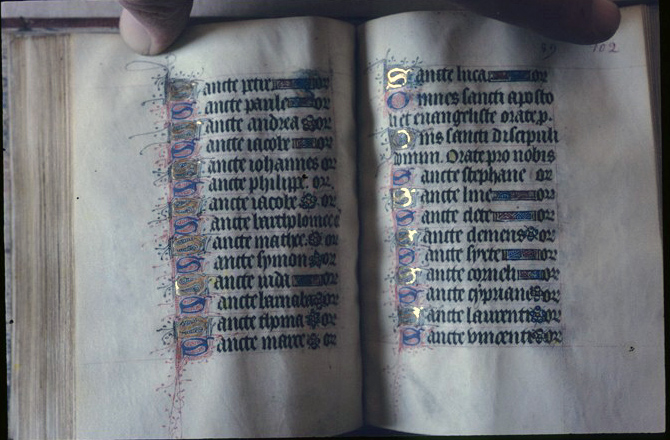 Sancte petre or
Sancte paule or
Sancte andrea or
Sancte iacobe or
Sancte iohannes or
Sancte philippe. or.
Sancte iacobe or
Sancte bartholomee
Sancte mathee or
Sancte symon or
Sancte iuda or
Sancte barnaba or
Sancte thoma or
Sancte marce or
102
Sancte luca or
Omnes sancti aposto
li et euangeliste orate p.
Omnes sancti discipuli
domini. Orate pro nobis
Sancte stephane or
Sancte line or
Sancte clete or
Sancte clemens or
Sancte syxte or
Sancte corneli or
Sancte cypriane or
Sancte laurenti or
Sancte vincenti or